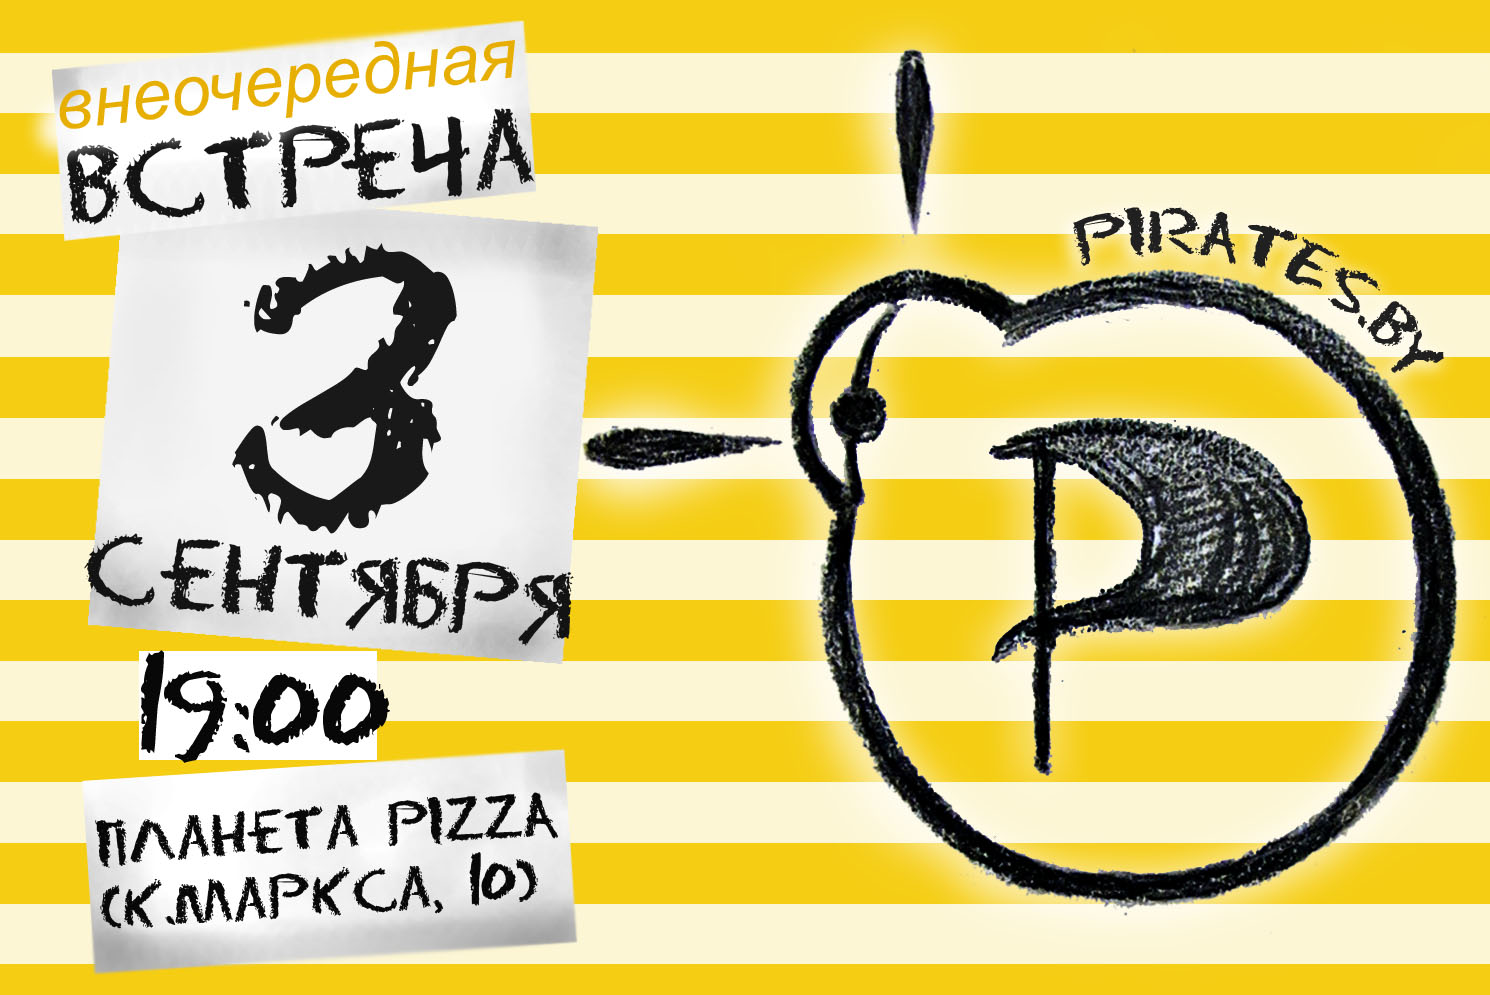 внеочередная
ВСТРЕЧА
3
СЕНТЯБРЯ
19:00
ПЛАНЕТА PIZZA
(К.МАРКСА, 10)
PIRATES.BY
P